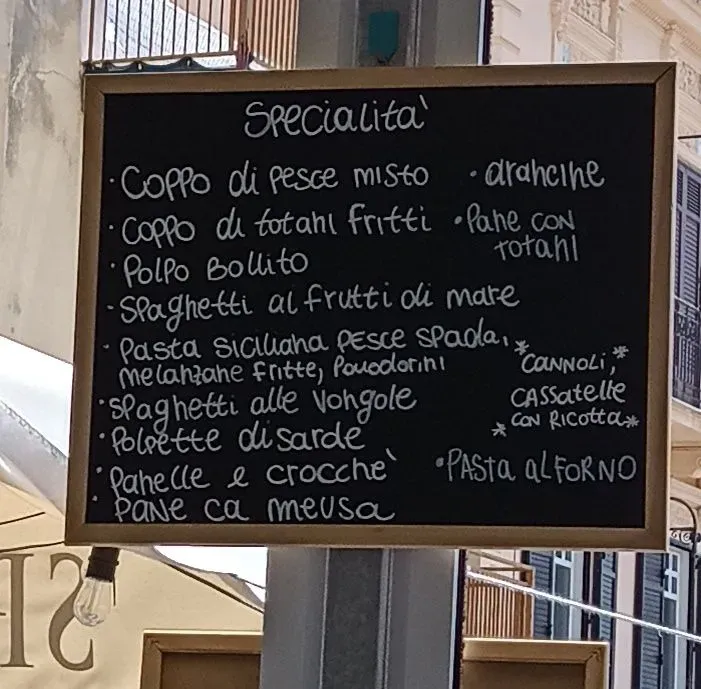 Specialita'
· Coppo di pesce misto
· Coppo di totani fritti
· Polpo Bollito
· Spaghetti ai frutti di mare
· Pasta siciliana pesce spada,
melanzane fritte, Pomodorini
· Spaghetti alle vongole
· Polpette di sarde
· Panelle e crocche'
· Pane ca meusa
· arancine
· Pane con
totani
* CANNOLI, *
CASSATELLE
* CON RICOTTA *
· PASTA AL FORNO